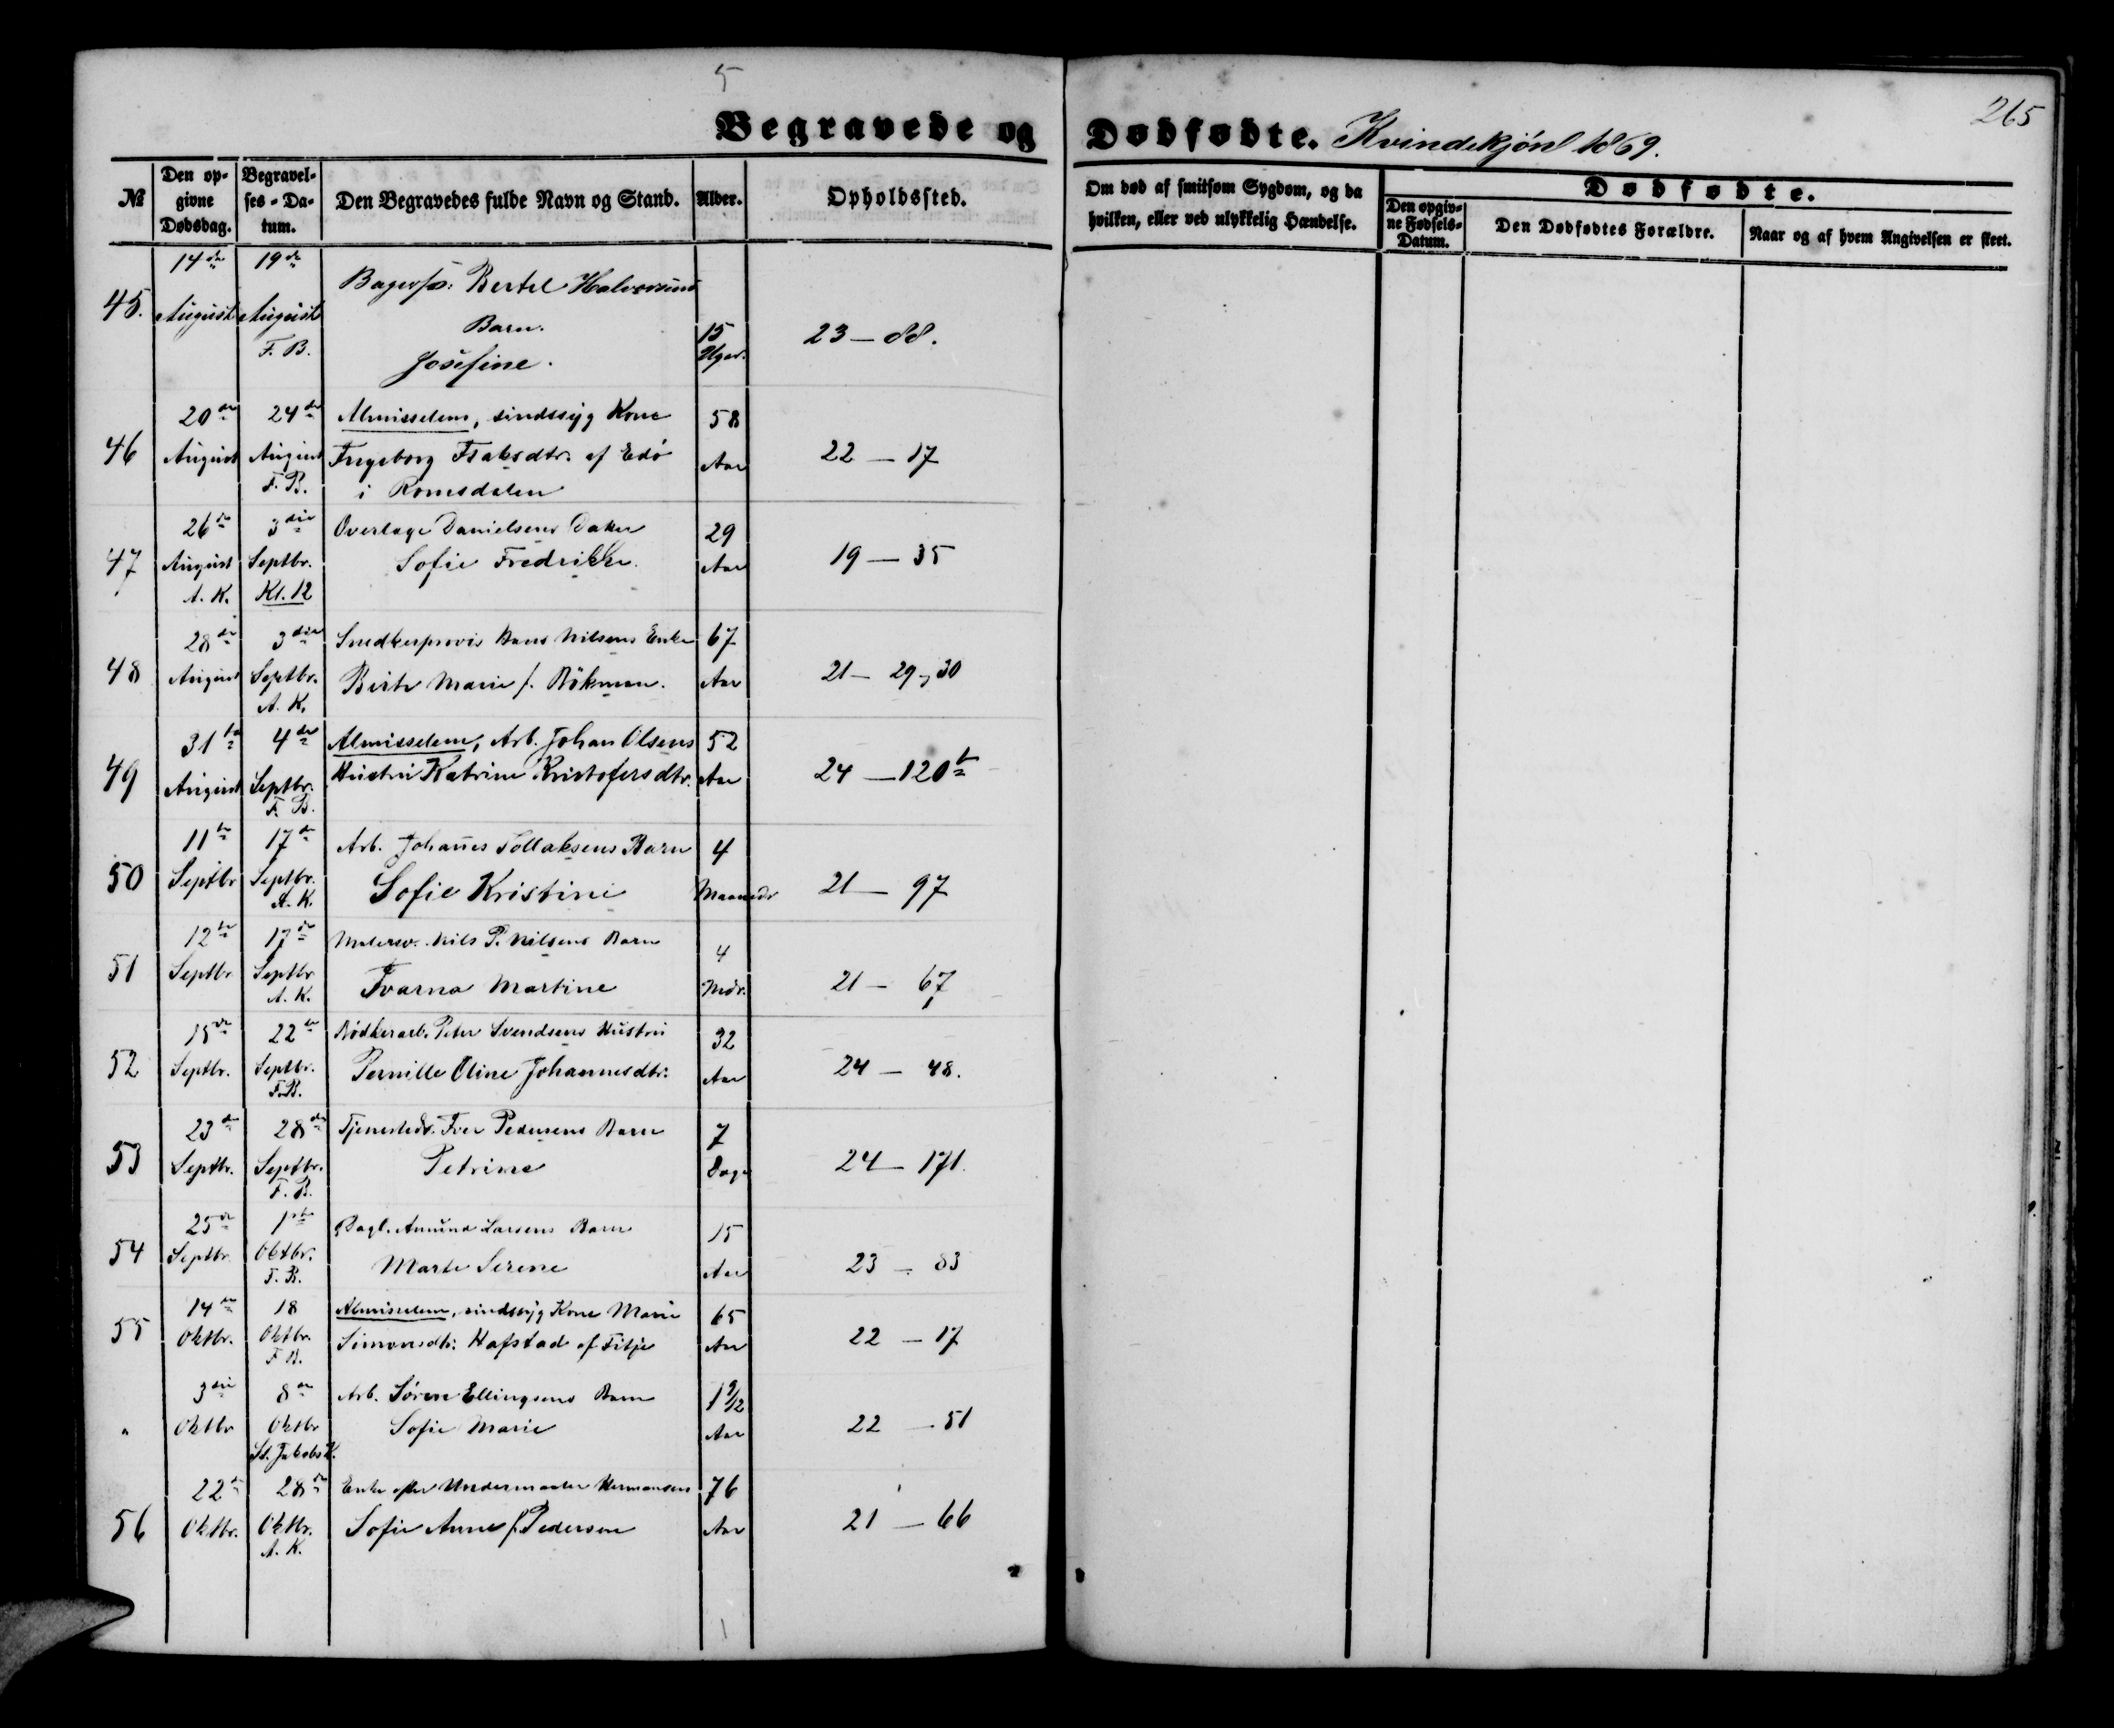 5
265
Begravede og Dødfødte. Kvindekjøn 1869.
№ | Den opgivne Dødsdag. | Begravelses-Datum. | Den Begravedes fulde Navn og Stand. | Alder. | Opholdssted. | Om død af smitsom Sygdom, og da hvilken, eller ved ulykkelig Hændelse. | Dødfødte.
Den opgivne Fødsels-Datum. | Den Dødfødtes Forældre. | Naar og af hvem Angivelsen er skeet.
14de 19de
Bertel Halvorsens
45. August August
Barn. 15 23 — 88.
F. B.
Josefine. Uger.
20de 24de Almisselem, sindssyg Kone 58
46 August August Ingeborg Isaksdtr. af Edø Aar 22 — 17
F. B. i Romsdalen
26de 3die Overlæge Danielsens Datter 29
47 August Septbr. Sofie Fredrikke. Aar 19 — 35
A. K. Kl. 12
28de 3die Hans Nilsens Enke 67
48 August Septbr. Berte Marie f. Bökman. Aar 21 — 29, 30
A. K.
31te 4de Almisselem, Arb. Johan Olsens 52
49 August Septbr. Hustru Katrine Kristofersdtr. Aar 24 — 120b
F. B.
11te 17de Arb. Johannes Tollaksens Barn 4
50 Septbr Septbr. Sofie Kristine Maaneder 21 — 97
A. K.
12te 17de Malersv. Nils P. Nilsens Barn 4
51 Septbr Septbr Ivarna Martine Mdr. 21 — 67
A. K.
15de 22de Bødkerarb. Peter Svendsens Hustru 32
52 Septbr. Septbr. Pernille Oline Johannesdtr. Aar 24 — 48.
F. B.
23de 28de Tjenestedr. Iver Pedersens Barn 7
53 Septbr. Septbr. Petrine Dage 24 — 171.
F. B.
25de 1ste Dagl. Amund Larsens Barn 15
54 Septbr. Oktbr. Marte Serene Aar 23 — 83
F. B.
14de 18 Almisselem, sindssyg Kone Marie 65
55 Oktbr. Oktbr. Simonsdtr. Hafstad af Fitje Aar 22 — 17
F. B.
3die 8de Arb. Sören Ellingsens Barn 1 9/12
" Oktbr Oktbr Sofie Marie Aar 22 — 51
St. Jakobs K.
22de 28de Enke efter Hermansen 76
56 Oktbr. Oktbr. Sofie Anne f. Pedersen Aar 21 — 66
A. K.